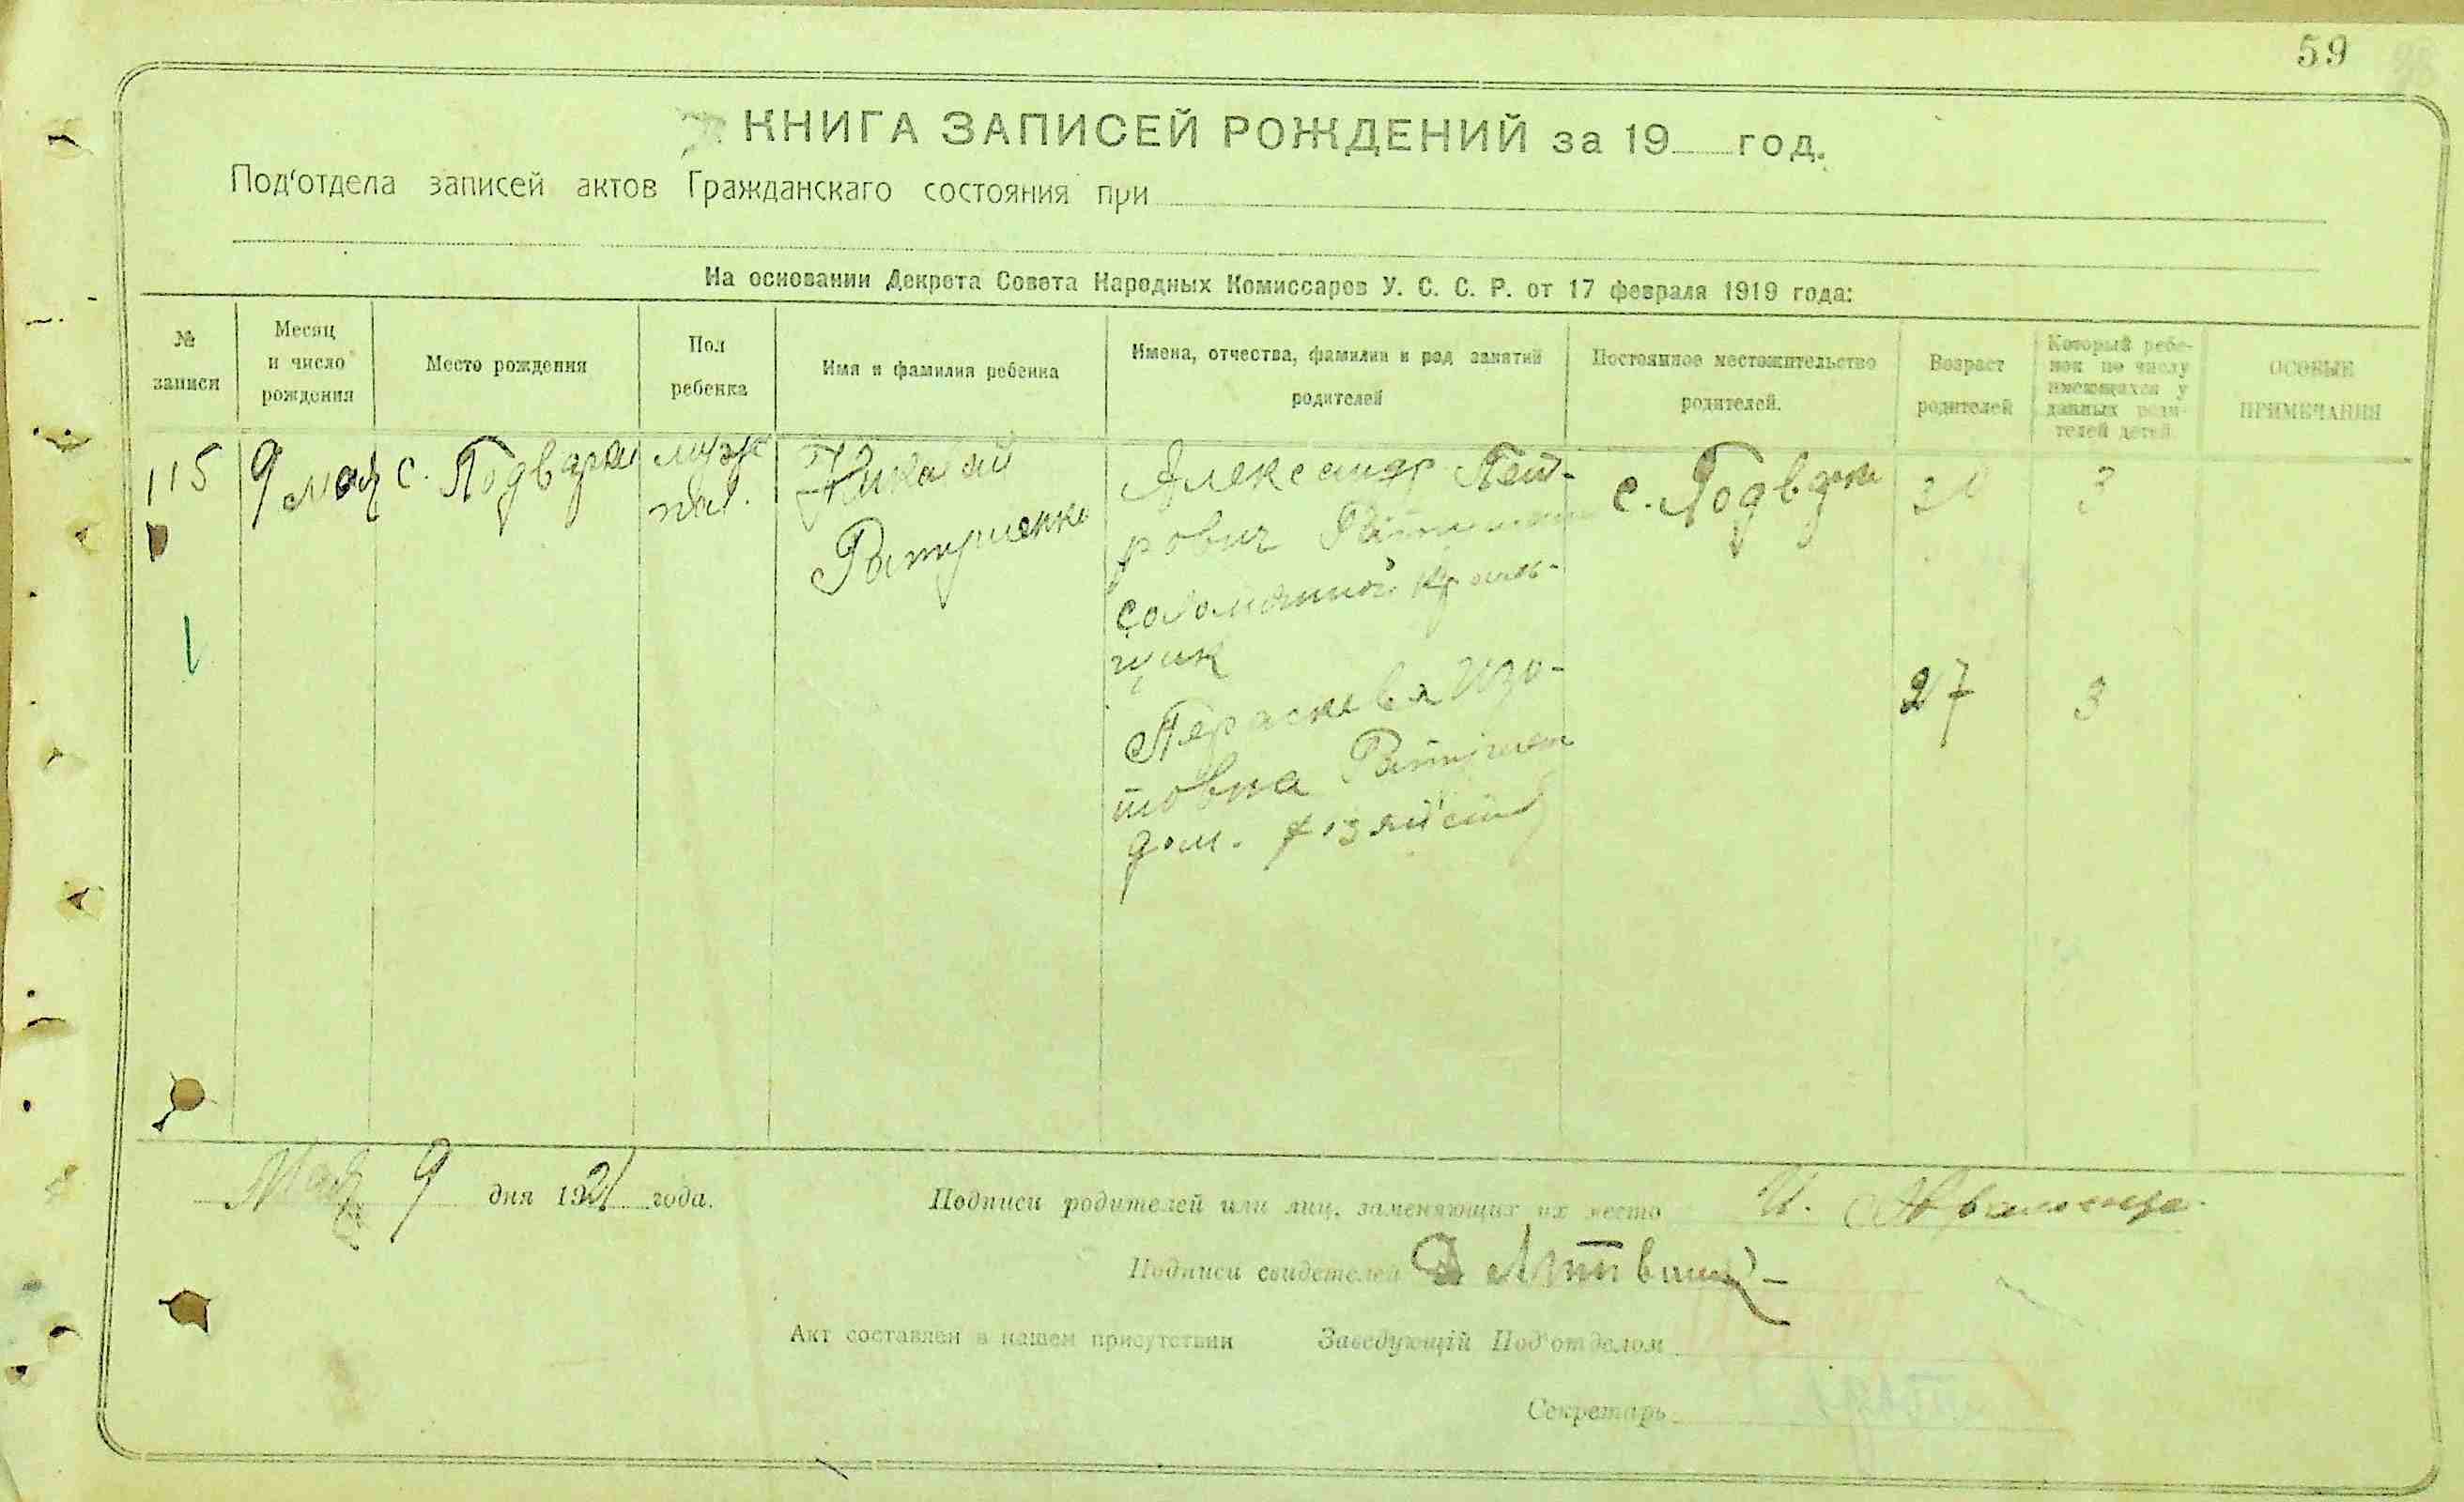 59
КНИГА ЗАПИСЕЙ РОЖДЕНИЙ за 19 год.
Под'отдела записей актов Гражданскаго состояния при
На основании Декрета Совета Народных Комиссаров У. С. С. Р. от 17 февраля 1919 года:
№ записи
Месяц и число рождения
Место рождения
Пол ребенка
Имя и фамилия ребенка
Имена, отчества, фамилии и род занятий родителей
Постоянное местожительство родителей.
Возраст родителей
Который ребе-
нок по числу
имеющихся у
данных роди-
телей детей
ОСОБЫЕ ПРИМЕЧАНИЯ
115
9 мая
с. Подварки
муж
пол.
Николай
Ратушенко
Александр Пет-
рович
с. Подварки
3
чик
Параскева Изо-
товна
дом. хозяйств
27
3
Мая 9 дня 1921 года.
Подписи родителей или лиц, заменяющих их место
Подписи свидетелей
Акт составлен в нашем присутствии Заведующій Под'отделом
Секретарь